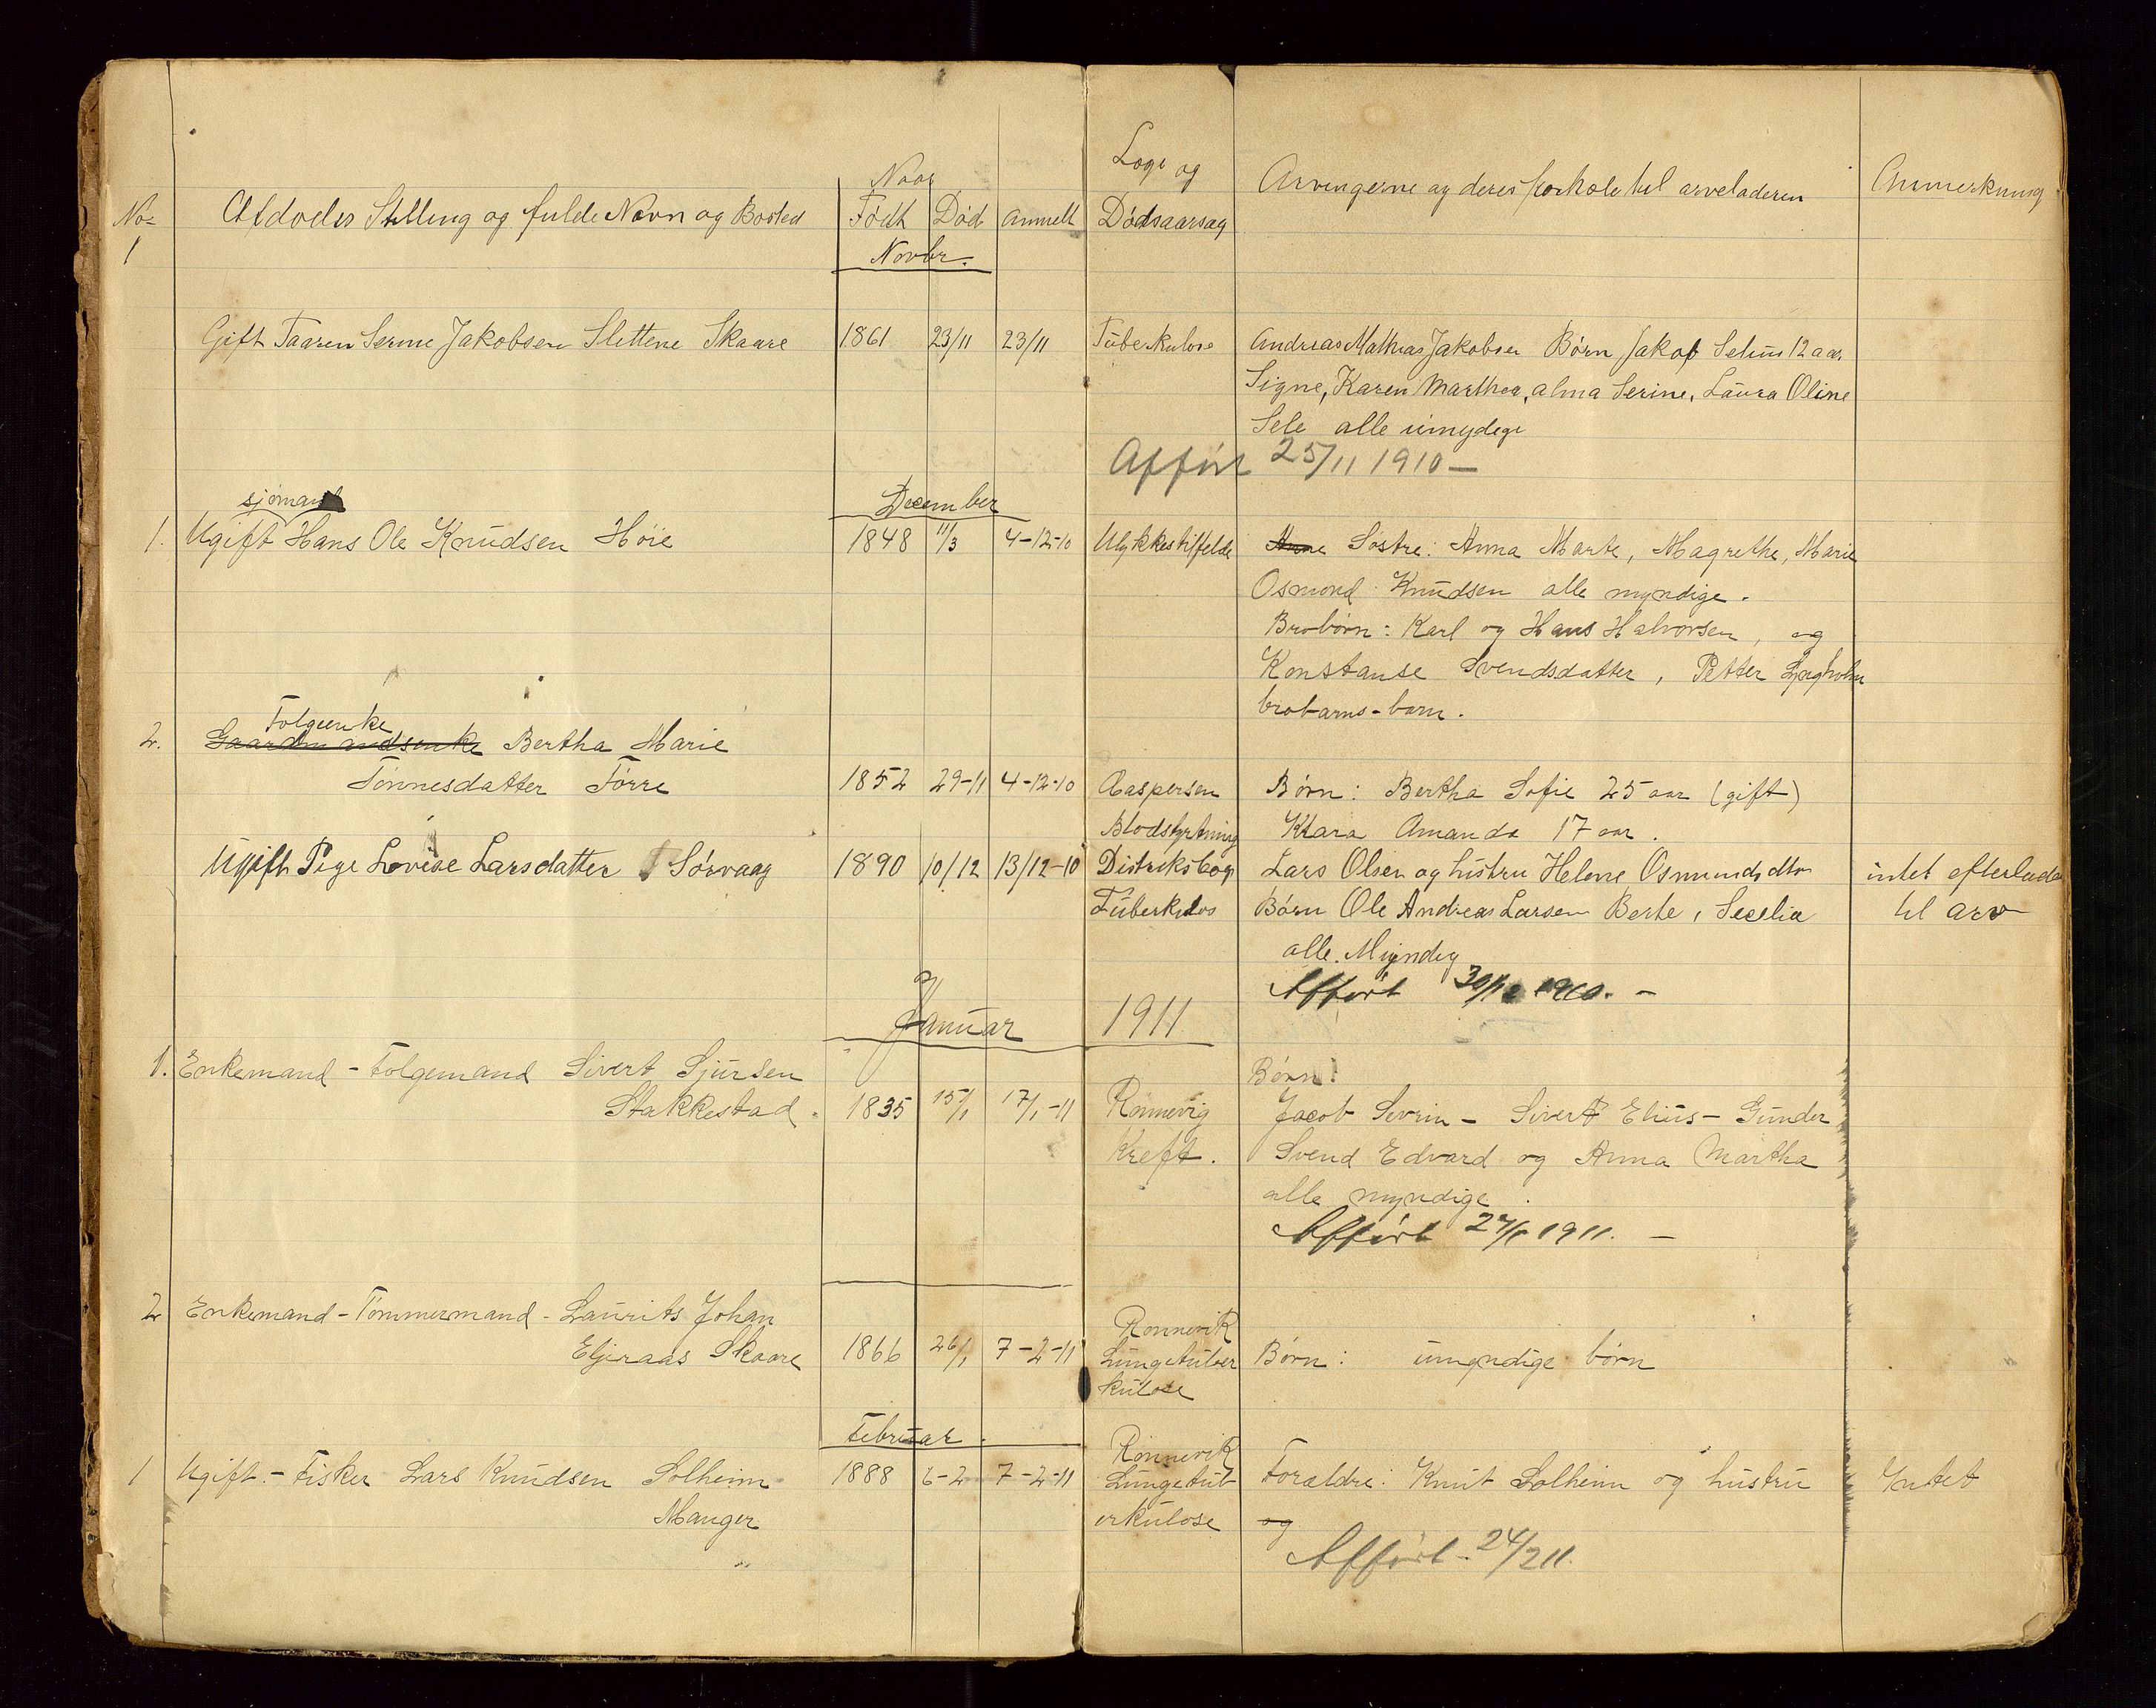 No- Afdødes Stilling og fulde Navn og Bosted Naar Født Død anmelt Lægi og Dødsaarsag Arvingerne og deres forhole til arveladeren Anmerkning
1
Novbr.
Gift Taaren Serine Jakobsen Slettene Skaare 1861 23/11 23/11 Tuberkulose Andreas Mathias Jakobsen Børn Jakob Selius 12 aar.
Signe, Karen Marthea, alma Serine, Laura Oline
Sele alle umydege
Afført 25/11 1910 —
December
sjømand
1. Ugift Hans Ole Knudsen Høie 1848 11/3 4-12-10 Ulykkestilfelde Søstre: Anna Marte, Magrethe, Marie
Osmond Knudsen alle myndige.
Brobørn: Karl og Hans Halvorsen, og
Konstanse Svendsdatter, Petter
brobarns-barn.
Folgeenke
2. Gaardmandsenke Bertha Marie
Tønnesdatter Førre 1852 29-11 4-12-10 Caspersen Børn: Bertha Sofie 25 aar (gift)
Blodstyrtning Klara Amanda 17 aar.
Ugift Pige Lovise Larsdatter Sørvaag 1890 10/12 13/12-10 Distriksleg Lars Olsen og hustru Helene Osmundsdtr intet efterlade
Tuberkulos Børn Ole Andreas Larsen Berte, Secelia til arv
alle. Myndig
Afført 30/12 1910. —
Januar 1911
1. Enkemand - Folgemand Sivert Sjursen Børn:
Stakkestad. 1835 15/1 17/1-11 Rønnevig Jacob Sevrin — Sivert Elius — Gunder
Kreft. Svend Edvard og Anna Martha
alle myndige.
Afført 27/1 1911. —
2 Enkemand - Tømmermand - Laurits Johan Rønnevik
Skaare 1866 26/1 7-2-11 Lungetuber Børn: umyndige børn
kulose
Februar.
Rønnevik
1 Ugift. - Fisker Lars Knudsen Solheim 1888 6-2 7-2-11 Lungetub Forældre: Knut Solheim og hustru Intet
Manger erkulose og
Afført. 24/2 11.